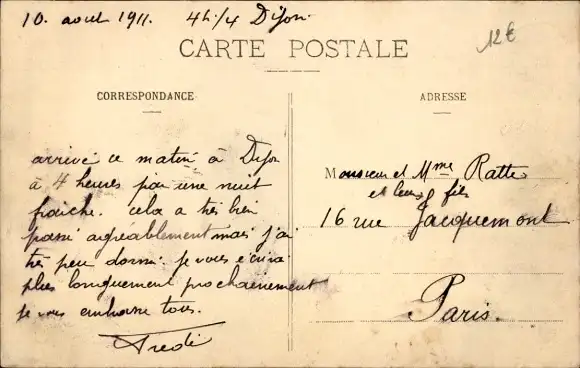 10. aout 1911. 4h 1/4 Dijon.
12€
CARTE POSTALE
CORRESPONDANCE
ADRESSE
arrivé ce matin à Dijon
à 4 heures par une nuit
fraiche. cela a très bien
passé agréablement mais j'ai
très peu dormi. je vous écrirai
plus longuement prochainement
je vous embrasse tous.
Fredi
Monsieur et Mme Ratte
et leur fils
16 rue Jacquemont
Paris.